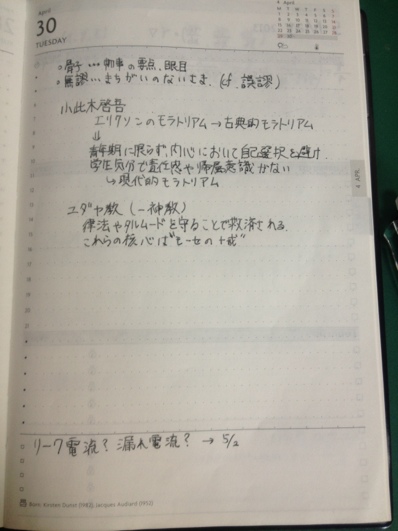 April
30
TUESDAY
4 April
○骨子…物事の要点、眼目
○無謬…まちがいのないさま。(cf. 誤謬)
小此木啓吾
エリクソンのモラトリアム→古典的モラトリアム
⇓
青年期に限らず、内心において自己選択を避け、
学生気分で責任感や帰属意識がない
↳現代的モラトリアム
4 APR
ユダヤ教(一神教)
律法やタルムードを守ることで救済される。
これらの核心は"モーセの十戒"
リーク電流?漏れ電流? → 5/2
Born: Kirsten Dunst (1982), Jacques Audiard (1952)